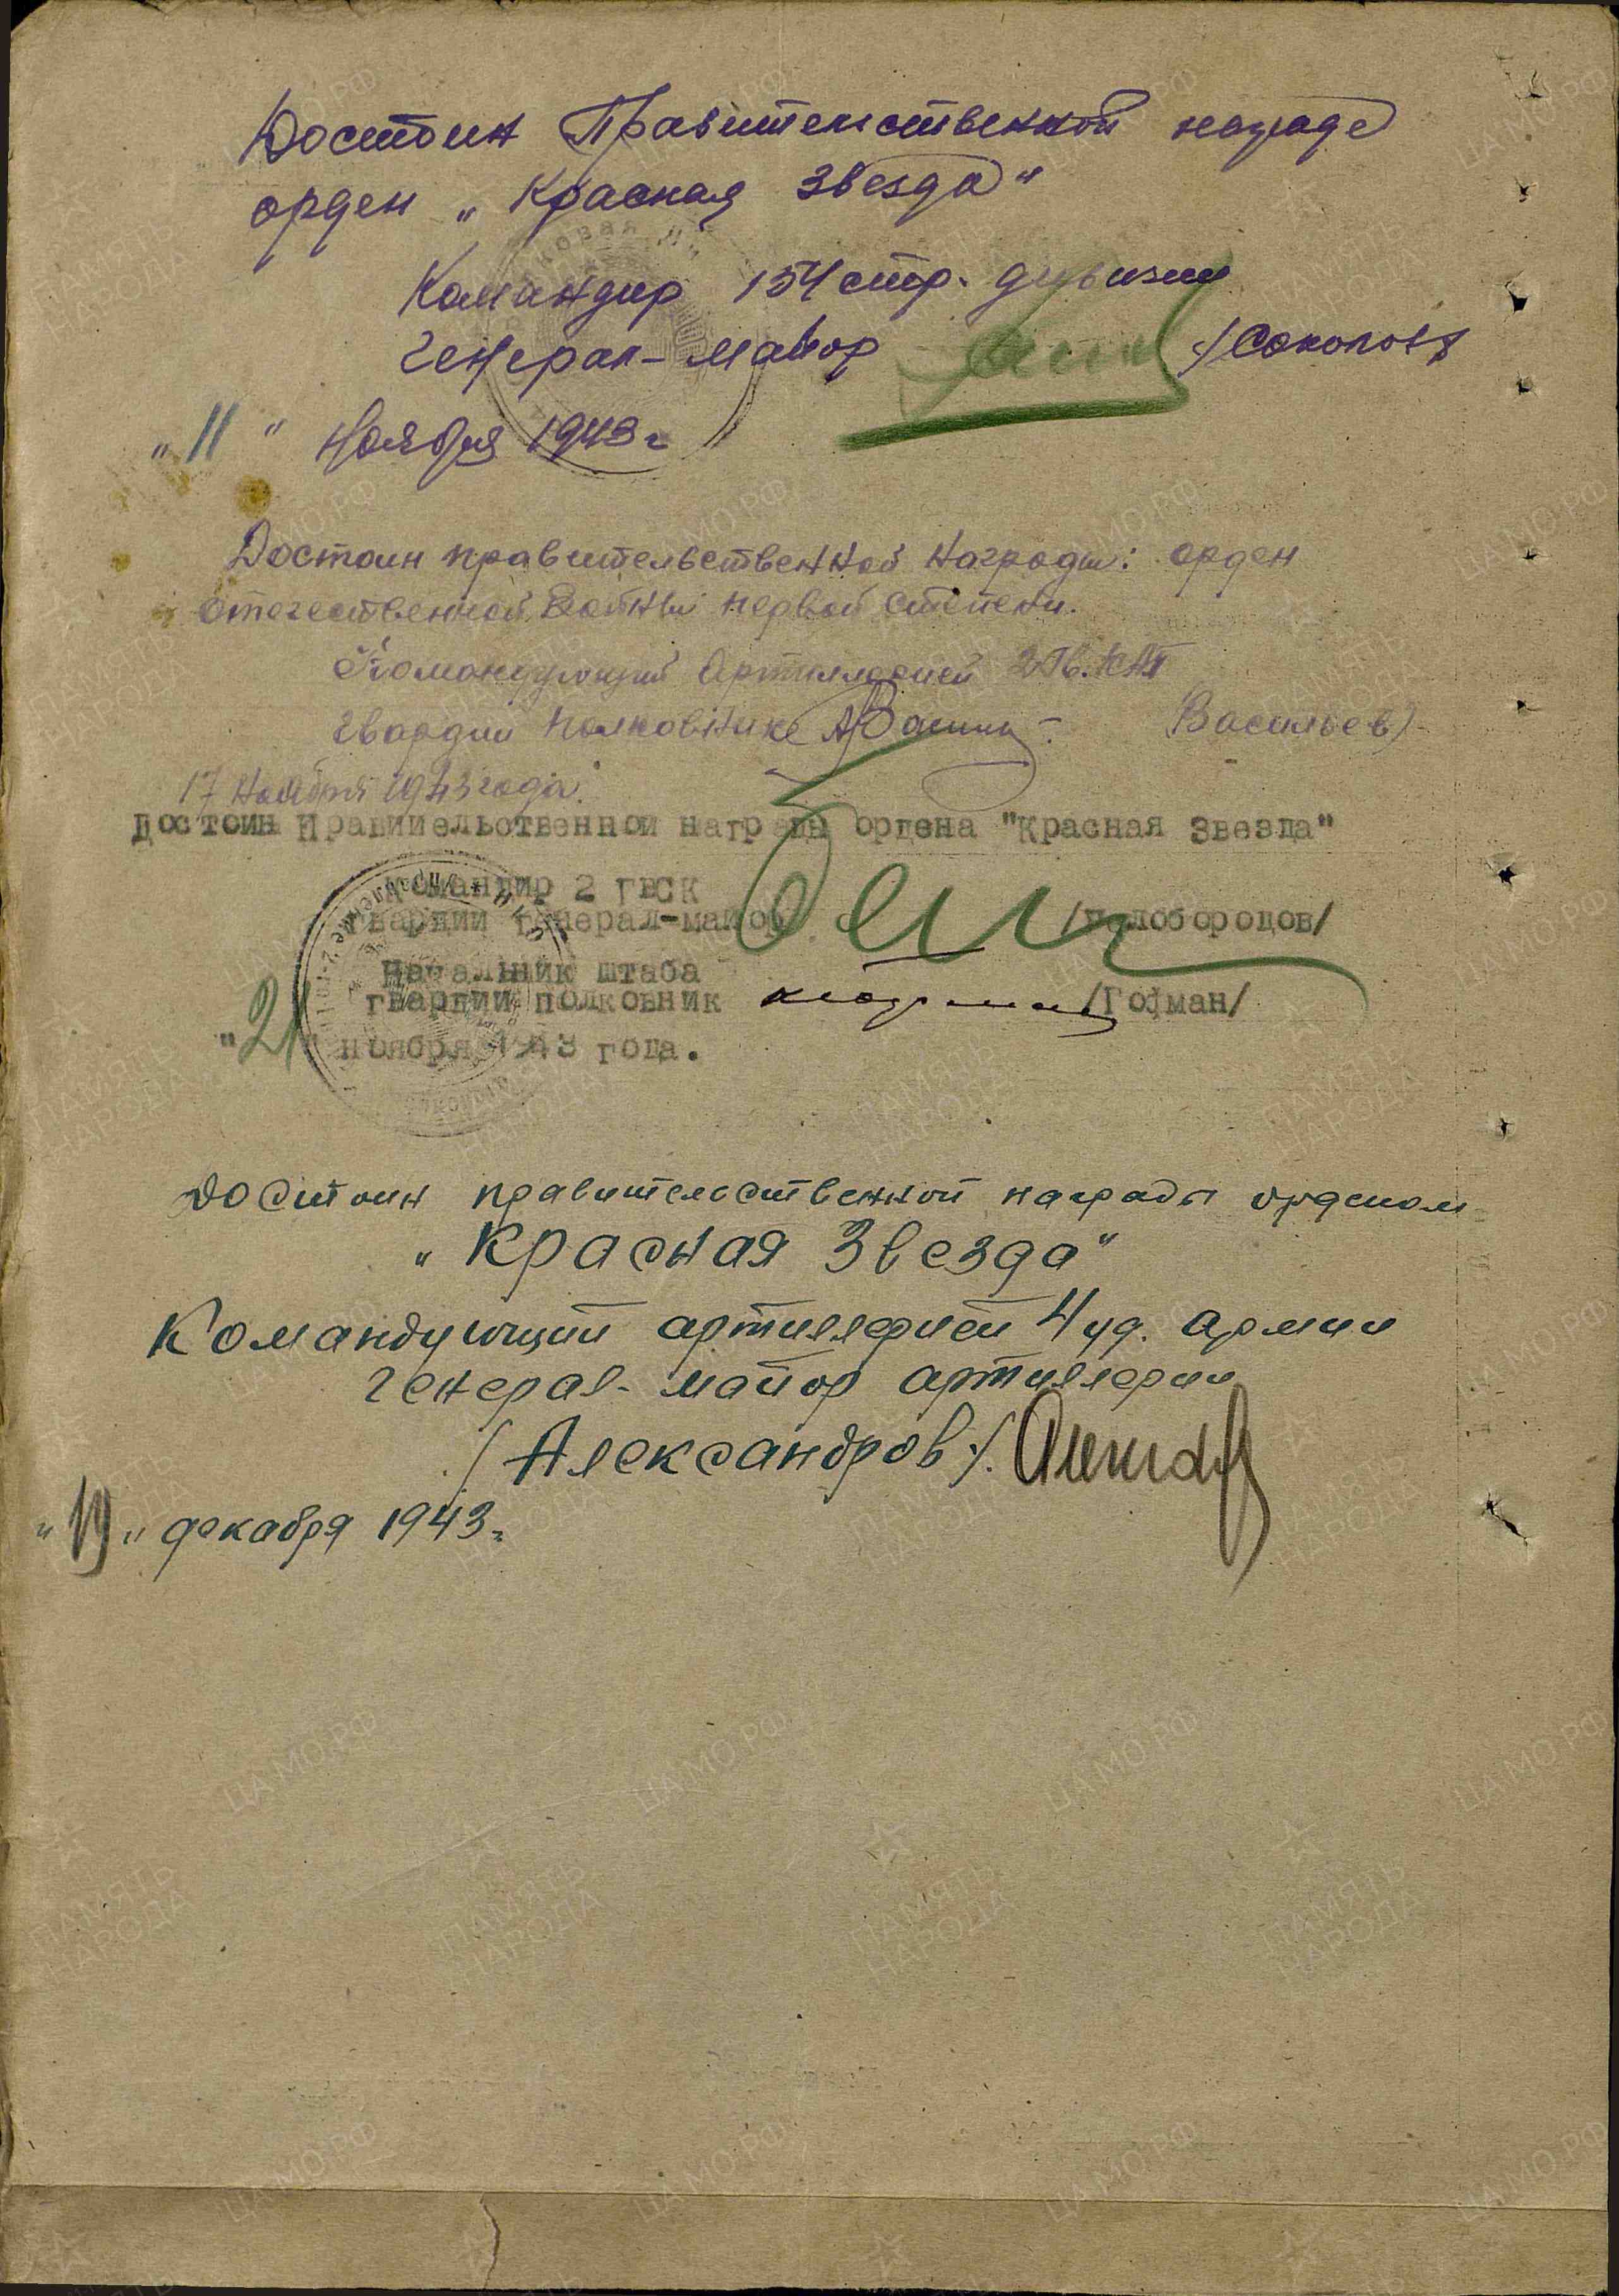 Достоин Правительственной награде
орден „Красная Звезда“
Командир 154 стр. дивизии
Генерал-майор /Соколов/
„11“ ноября 1943 г
Достоин правительственной награды: орден
Отечественной Войны первой степени.
Командующий Артиллерией 2 Гв.
гвардии полковник Васильев)
17 ноября 1943 года.
Достоин Правительственной награды ордена "Красная Звезда"
Командир 2 ГвСК
гвардии генерал-майор /Белобородов/
Начальник штаба
гвардии полковник /Гофман/
"21" ноября 1943 года.
Достоин правительственной награды орденом
„Красная Звезда“
Командующий артиллерией 4 уд. армии
генерал-майор артиллерии
/Александров/.
„19“ декабря 1943 г.